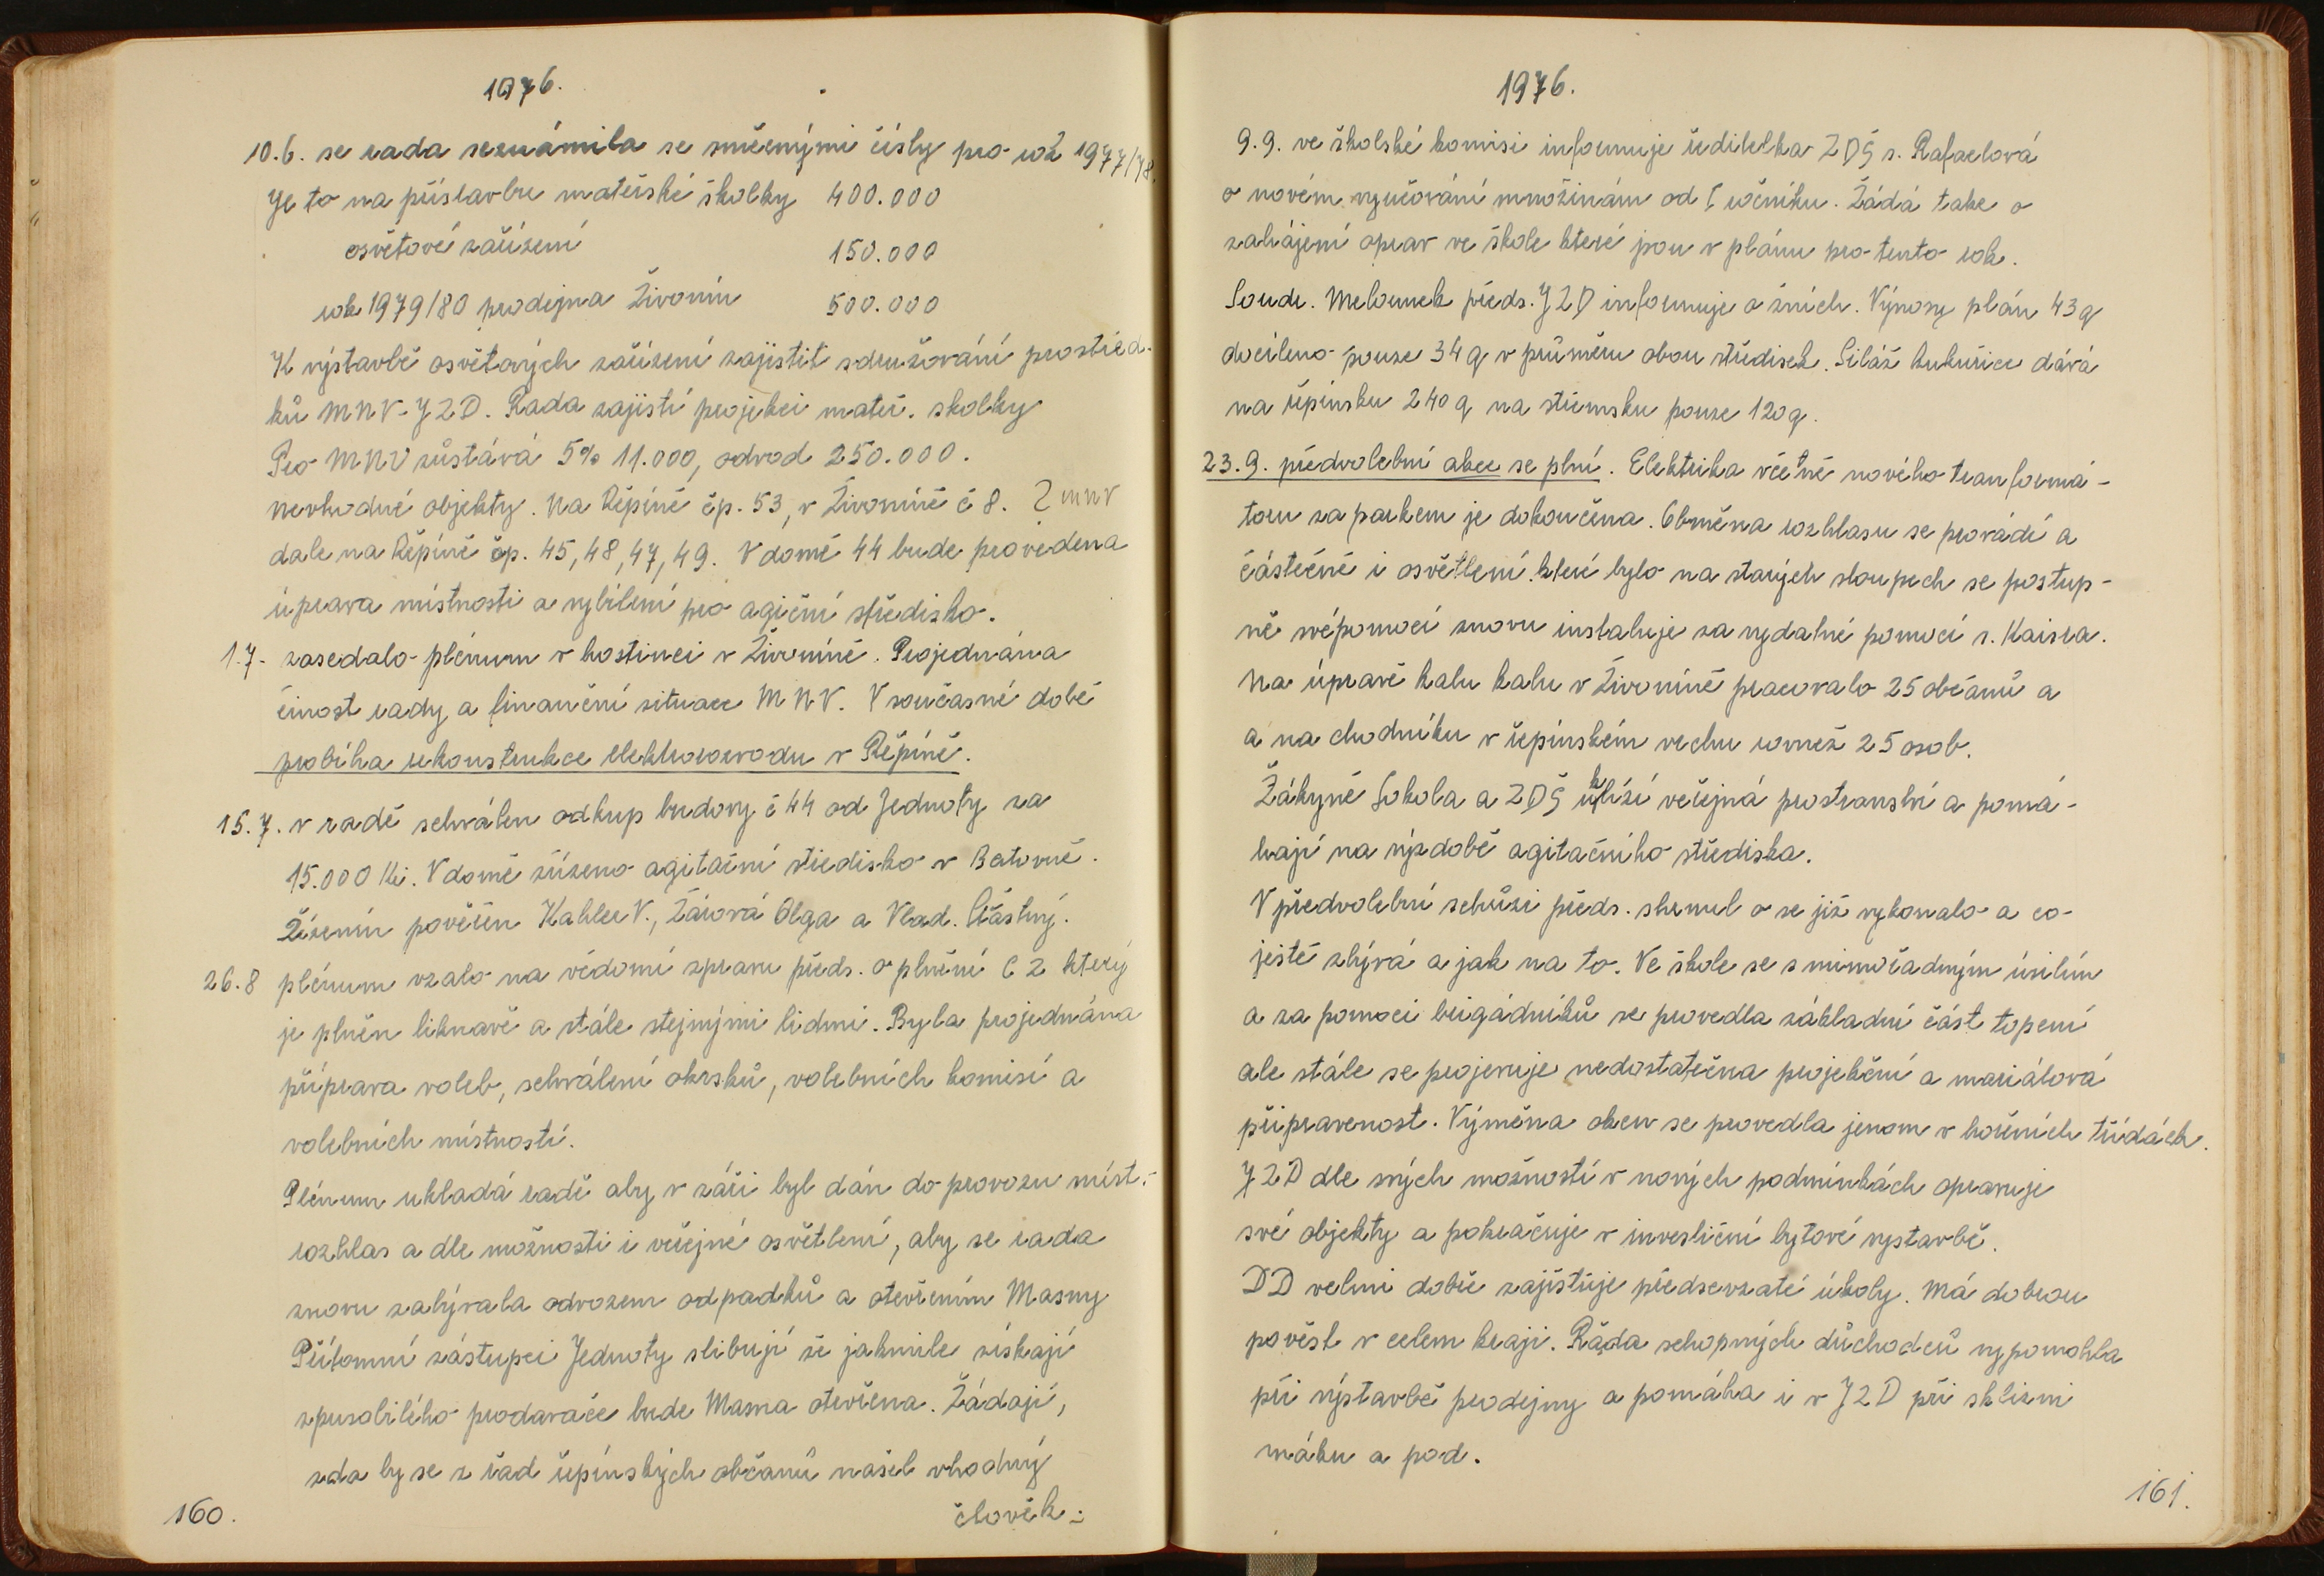 1976.
10.6. se rada seznámila se směrnými čísly pro rok 1977/78.
Je to na přístavbu mateřské školky 400.000
osvětové zařízení 150.000
rok 1979/80 prodejna Živonín 500.000
K výstavbě osvětových zařízení zajistit sdružování prostřed-
ků MNV-JZD. Rada zajistí projekci mateř. skolky
Pro MNV zůstává 5% 11.000, odvod 250.000.
nevhodné objekty. Na Řepíně čp. 53, v Živoníně č 8. 2 MNV
dale na Řepíně čp. 45, 48, 47, 49. V domě 44 bude provedena
úprava místnosti a vybílení pro agiční středisko.
1.7. zasedalo plénum v hostinci v Živoníně. Projednána
činost rady a finanční situace MNV. V současné době
probíha rekonstrukce elektrorozvodu v Řepíně.
15.7. v radě schválen odkup budovy č 44 od Jednoty za
15.000 Kč. V domě zřízeno agitační středisko v
Řízením pověřen Kahler V., Žárová Olga a Vlad. Šťástný.
26.8 plénum vzalo na vědomí zpravu předs. o plnění C Z který
je plněn liknavě a stále stejnými lidmi. Byla projednána
příprava voleb, schválení okrsků, volebních komisí a
volebních místností.
Plénum ukladá radě aby v záři byl dán do provozu míst.
rozhlas a dle možnosti i veřejné osvětlení, aby se rada
znovu zabývala odvozem odpadků a otevřením Masny
Přítomní zástupci Jednoty slibují že jakmile získají
zpusobilého prodavače bude Masna otevřena. Žádají,
zda by se z řad řepínských občanů našel vhodný
člověk.
160.
1976.
9.9. ve školské komisi informuje ředitelka ZDŠ s. Rafaelová
o novém vyučování množinám od I ročníku. Žádá take o
zahájení oprav ve škole které jsou v plánu pro tento rok.
Soudr. Melounek předs. JZD informuje o žních. Výnosy plán 43 q
docíleno pouze 34 q v průměru obou středisek. Siláž kukuřice dává
na řepínsku 240 q na střemsku pouze 120 q.
23.9. předvolební akce se plní. Elektrika včetně nového tranformá-
toru za parkem je dokončena. Obměna rozhlasu se provádí a
částečně i osvětlení které bylo na starých sloupech se postup-
ně svépomocí znovu instaluje za vydatné pomoci s. Kaisra.
Na úpravě kalu kalu v Živoníně pracovalo 25 občanů a
a na chodníku v řepínském vrchu rovnež 25 osob.
Žákyně Sokola a ZDŠ uklízí veřejná prostranství a pomá-
hají na výzdobě agitačního střediska.
V předvolební schůzi předs. shrnul o se již vykonalo a co
ještě zbývá a jak na to. Ve škole se s mimořadným úsilím
a za pomoci brigádníků se provedla základní část topení
ale stále se projevuje nedostatečna projekční a mariálová
připravenost. Výměna oken se provedla jenom v horních třídách.
JZD dle svých možností v nových podmínkách opravuje
své objekty a pokračuje v investiční bytové vystavbě.
DD velmi dobře zajišťuje předsevzaté úkoly. Má dobrou
pověst v celem kraji. Řada schopných důchodců vypomohla
při výstavbě prodejny a pomáha i v JZD při sklizni
máku a pod.
161.